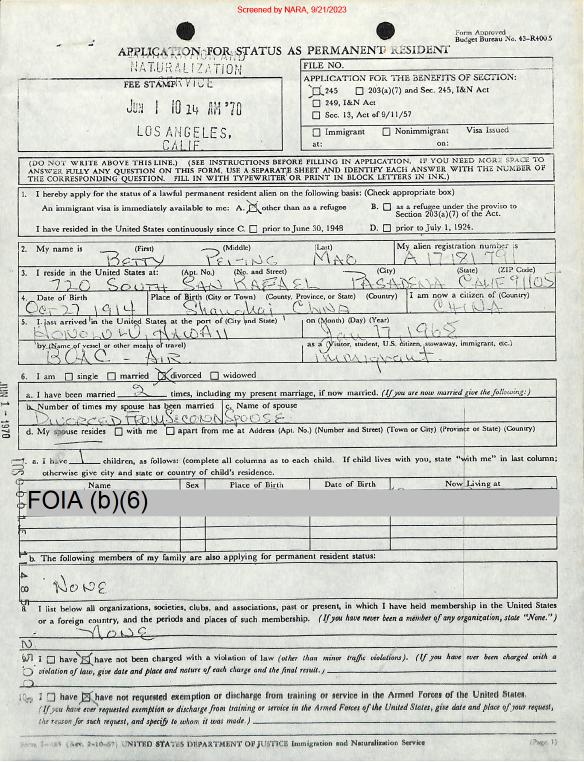 Screened by NARA, 9/21/2023
Form Approved
Budget Bureau No. 43-R400.5
APPLICATION FOR STATUS AS PERMANENT RESIDENT
NATURALIZATION
FEE STAMP
JUN 1 10 14 AM '70
LOS ANGELES,
CALIF.
FILE NO.
APPLICATION FOR THE BENEFITS OF SECTION:
245 203(a)(7) and Sec. 245, I&N Act
249, I&N Act
Sec. 13, Act of 9/11/57
Immigrant Nonimmigrant Visa Issued
at: on:
(DO NOT WRITE ABOVE THIS LINE.) (SEE INSTRUCTIONS BEFORE FILLING IN APPLICATION. IF YOU NEED MORE SPACE TO
ANSWER FULLY ANY QUESTION ON THIS FORM, USE A SEPARATE SHEET AND IDENTIFY EACH ANSWER WITH THE NUMBER OF
THE CORRESPONDING QUESTION. FILL IN WITH TYPEWRITER OR PRINT IN BLOCK LETTERS IN INK.)
1. I hereby apply for the status of a lawful permanent resident alien on the following basis: (Check appropriate box)
An immigrant visa is immediately available to me: A. other than as a refugee B. as a refugee under the proviso to
Section 203(a)(7) of the Act.
I have resided in the United States continuously since C. prior to June 30, 1948 D. prior to July 1, 1924.
2. My name is (First) (Middle) (Last) My alien registration number is
BETTY PEI-ING MAO A 17 181 791
3. I reside in the United States at: (Apt. No.) (No. and Street) (City) (State) (ZIP Code)
720 SOUTH SAN RAFAEL PASADENA CALIF 91105
4. Date of Birth Place of Birth (City or Town) (County, Province, or State) (Country) I am now a citizen of (Country)
Oct 27 1914 Shanghai CHINA CHINA
5. I last arrived in the United States at the port of (City and State) on (Month) (Day) (Year)
HONOLULU HAWAII Jan 17 1968
by (Name of vessel or other means of travel) as a (Visitor, student, U.S. citizen, stowaway, immigrant, etc.)
BOAC - AIR immigrant
6. I am single married divorced widowed
a. I have been married 2 times, including my present marriage, if now married. (If you are now married give the following:)
b. Number of times my spouse has been married c. Name of spouse
DIVORCED FROM SECOND SPOUSE
d. My spouse resides with me apart from me at Address (Apt. No.) (Number and Street) (Town or City) (Province or State) (Country)
a. I have 1 children, as follows: (complete all columns as to each child. If child lives with you, state "with me" in last column;
otherwise give city and state or country of child's residence.
Name Sex Place of Birth Date of Birth Now Living at
FOIA (b)(6)
b. The following members of my family are also applying for permanent resident status:
NONE
I list below all organizations, societies, clubs, and associations, past or present, in which I have held membership in the United States
or a foreign country, and the periods and places of such membership. (If you have never been a member of any organization, state "None.")
NONE
I have have not been charged with a violation of law (other than minor traffic violations). (If you have ever been charged with a
violation of law, give date and place and nature of each charge and the final result.)
I have have not requested exemption or discharge from training or service in the Armed Forces of the United States.
(If you have ever requested exemption or discharge from training or service in the Armed Forces of the United States, give date and place of your request,
the reason for such request, and specify to whom it was made.)
Form I-485 (Rev. 2-10-67) UNITED STATES DEPARTMENT OF JUSTICE Immigration and Naturalization Service (Page 1)
JUN 1 - 1970